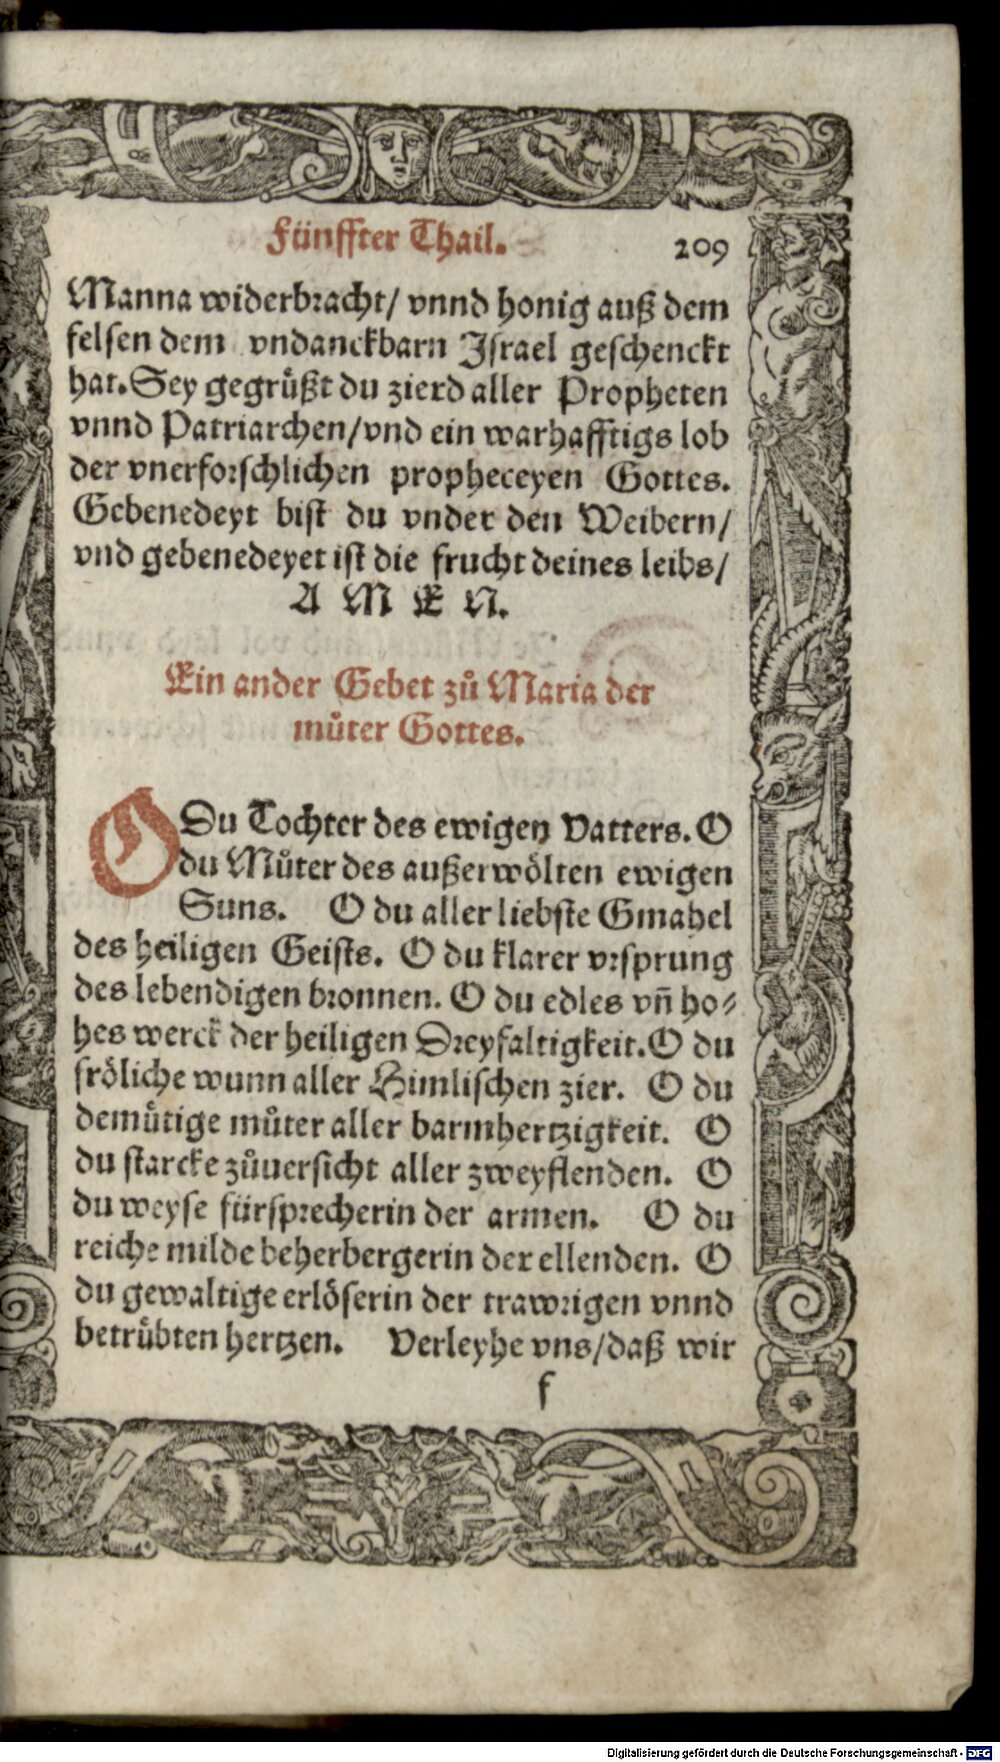 Fünffter Thail. 209
Manna widerbracht/ vnnd honig auß dem
felsen dem vndanckbarn Israel geschenckt
hat. Sey gegrüßt du zierd aller Propheten
vnnd Patriarchen/ vnd ein warhafftigs lob
der vnerforschlichen propheceyen Gottes.
Gebenedeyt bist du vnder den Weibern/
vnd gebenedeyet ist die frucht deines leibs/
A M E N.
Ein ander Gebet zů Maria der
můter Gottes.
O Du Tochter des ewigen Vatters. O
du Můter des außerwölten ewigen
Suns. O du aller liebste Gmahel
des heiligen Geists. O du klarer vrsprung
des lebendigen bronnen. O du edles vñ ho⸗
hes werck der heiligen Dreyfaltigkeit. O du
fröliche wunn aller Himlischen zier. O du
demůtige můter aller barmhertzigkeit. O
du starcke zůuersicht aller zweyflenden. O
du weyse fürsprecherin der armen. O du
reiche milde beherbergerin der ellenden. O
du gewaltige erlöserin der trawrigen vnnd
betrůbten hertzen. Verleyhe vns/ daß wir
f
Digitalisierung gefördert durch die Deutsche Forschungsgemeinschaft - DFG